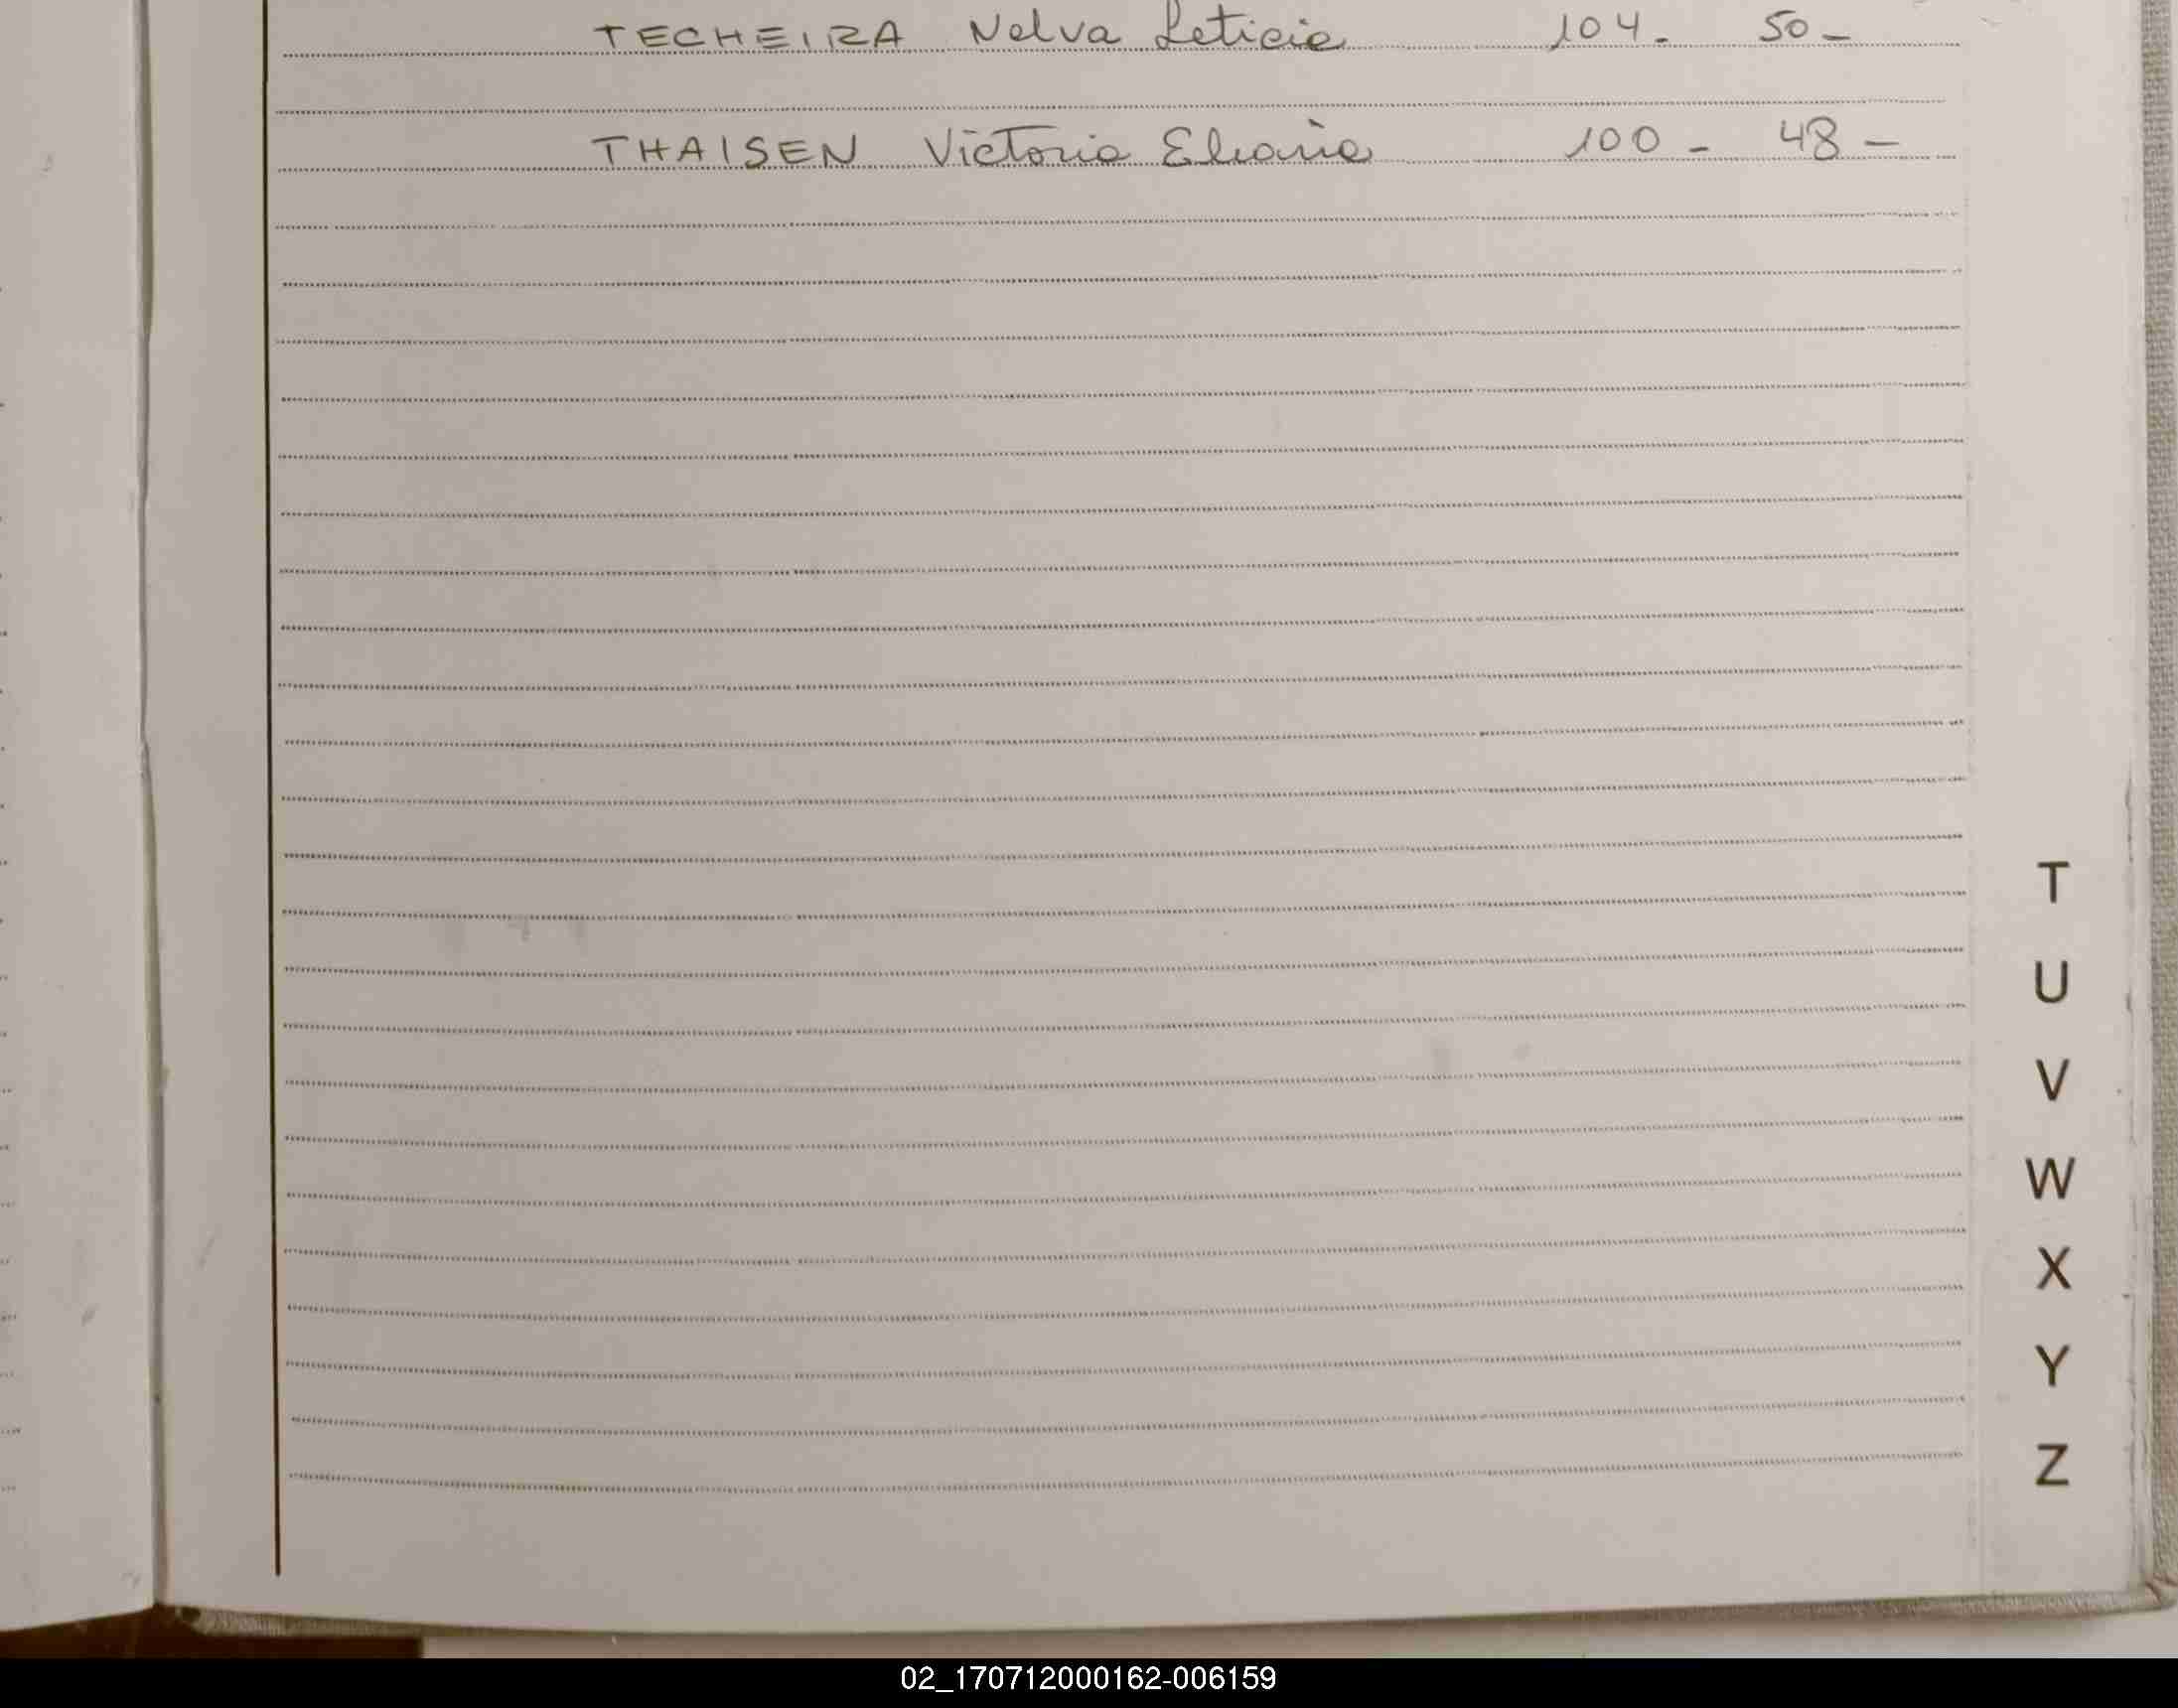 TECHEIRA Nelva Leticia 104. 50 -
THAISEN Victoria Eliana 100 - 48 -
T
U
V
W
X
Y
Z
02_170712000162-006159